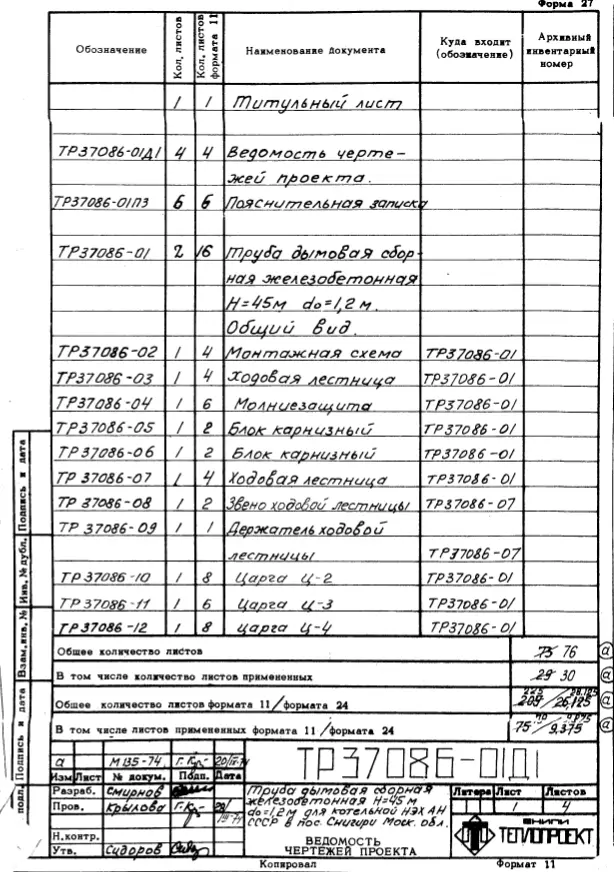 Форма 27
Обозначение Кол. листов Кол. листов формата 11 Наименование документа Куда входит (обозначение) Архивный инвентарный номер
1 1 Титульный лист
ТР37086-01Д1 4 4 Ведомость черте-
жей проекта.
ТР37086-01ПЗ 6 6 Пояснительная записка
ТР37086-01 2 16 Труба дымовая сбор-
ная железобетонная
Н=45м do=1,2м.
Общий вид.
ТР37086-02 1 4 Монтажная схема ТР37086-01
ТР37086-03 1 4 Ходовая лестница ТР37086-01
ТР37086-04 1 6 Молниезащита ТР37086-01
ТР37086-05 1 2 Блок карнизный ТР37086-01
ТР37086-06 1 2 Блок карнизный ТР37086-01
ТР 37086-07 1 4 Ходовая лестница ТР37086-01
ТР 37086-08 1 2 Звено ходовой лестницы ТР37086-07
ТР 37086-09 1 1 Держатель ходовой
лестницы ТР37086-07
ТР 37086-10 1 8 Царга Ц-2 ТР37086-01
ТР37086-11 1 6 Царга Ц-3 ТР37086-01
ТР37086-12 1 8 Царга Ц-4 ТР37086-01
Общее количество листов 75 76 а
В том числе количество листов примененных 29 30 а
Общее количество листов формата 11/формата 24 225 28,125 209/26,125 а
В том числе листов примененных формата 11/формата 24 75/9,375 а
Подпись и дата
Инв. № дубл.
Взам. инв. №
Подпись и дата
подл.
а М135-74
Изм Лист № докум. Подп. Дата
ТР37086-01Д1
Разраб. Смирнов
Пров. Крылова
Н.контр.
Утв. Сидоров
Труба дымовая сборная
железобетонная Н=45м
do=1,2м для котельной НЭХ АН
СССР в пос. Снигири Моск. обл.
ВЕДОМОСТЬ
ЧЕРТЕЖЕЙ ПРОЕКТА
Литера Лист Листов
1 4
ВНИПИ
ТЕПЛОПРОЕКТ
Копировал Формат 11